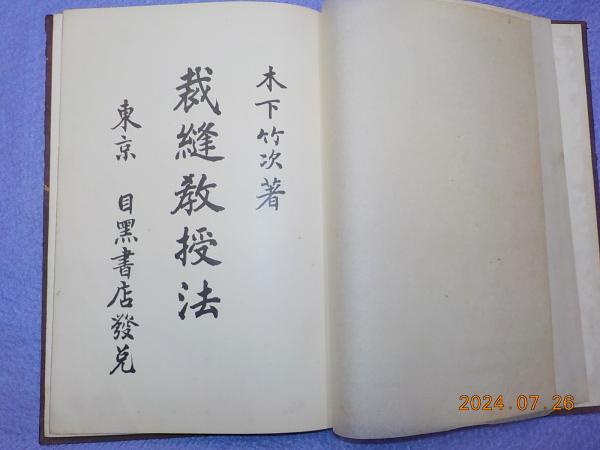 木下竹次著
裁縫教授法
東京 目黑書店發兌
2024.07.26